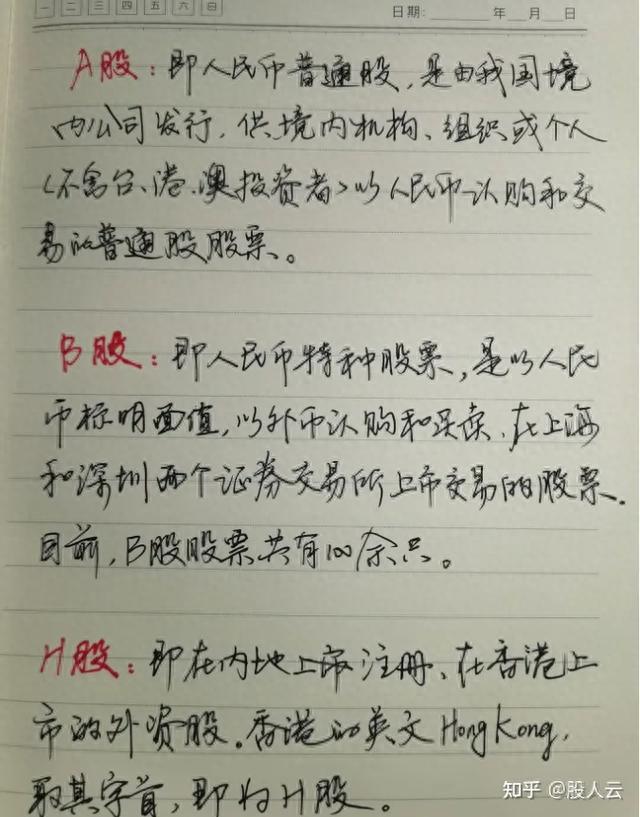 一 二 三 四 五 六 日
日期： 年 月 日
A股：即人民币普通股，是由我国境
内公司发行，供境内机构、组织或个人
（不含台、港、澳投资者）以人民币认购和交
易的普通股股票。
B股：即人民币特种股票，是以人民
币标明面值，以外币认购和买卖，在上海
和深圳两个证券交易所上市交易的股票.
目前，B股股票共有100余只。
H股：即在内地上市注册、在香港上
市的外资股。香港的英文HongKong，
取其字首，即为H股。
知乎 @股人云